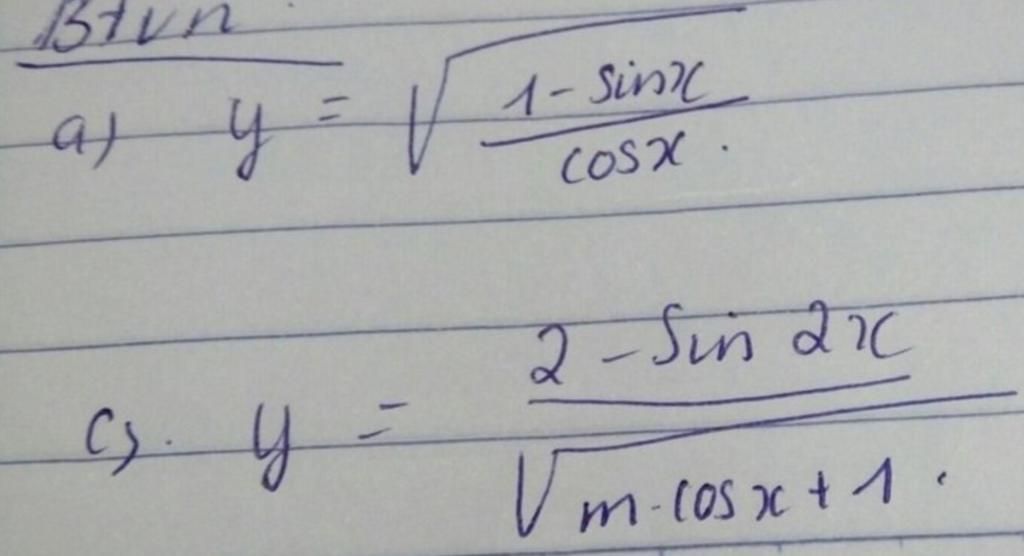 Btvn
a) y = √((1 - sinx)/(cosx)).
c). y = (2 - Sin 2x)/(√(m.cosx + 1)).